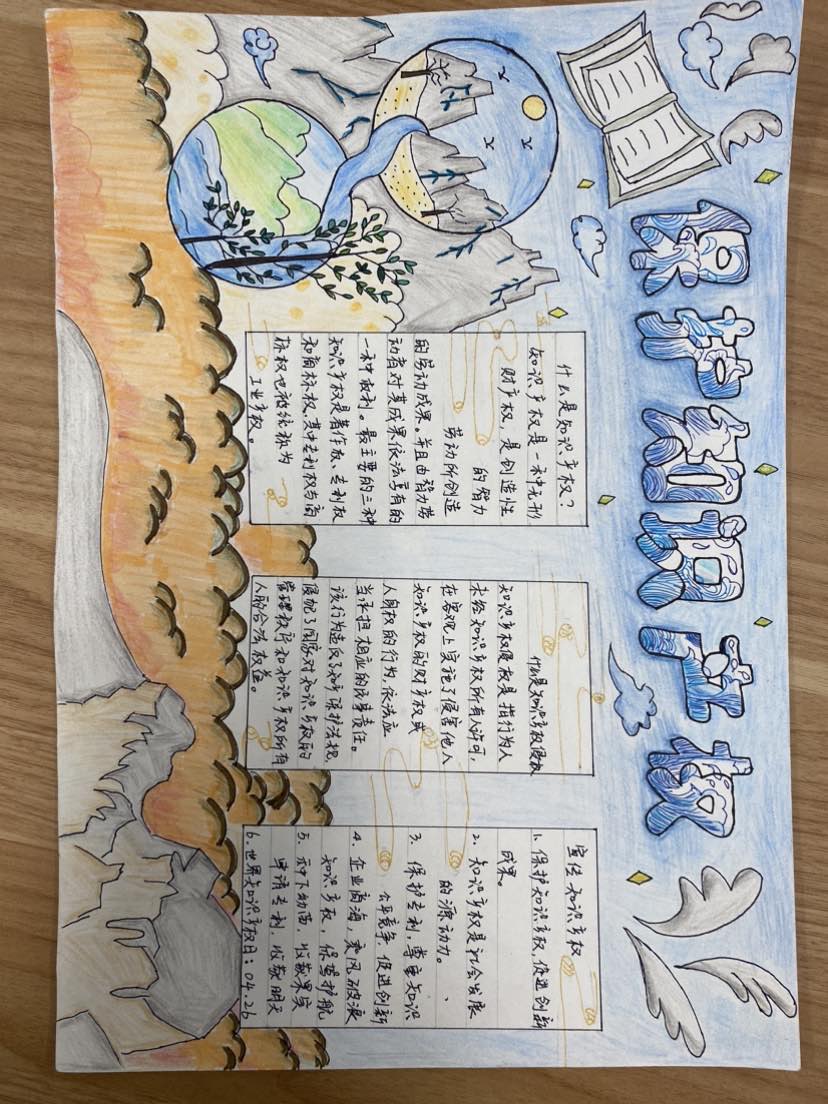 保护知识产权
什么是知识产权?
知识产权是一种无形
财产权,是创造性
的智力
劳动所创造
的劳动成果。并且由智力劳
动者对其成果依法享有的
一种权利。最主要的三种
知识产权是著作权、专利权
和商标权,其中专利权与商
标权也被统称为
工业产权。
什么是知识产权侵权
知识产权侵权是指行为人
未经知识产权所有人许可,
在客观上实施了侵害他人
知识产权的财产权或
人身权的行为,依法应
当承担相应的民事责任。
该行为违反了知产保护法规,
侵犯了国家对知识产权的
管理秩序和知识产权所有
人的合法权益。
宣传知识产权
1. 保护知识产权,促进创新
成果。
2. 知识产权是社会发展
的源动力。
3. 保护专利,尊重知识
公平竞争,促进创新
4. 企业商海,乘风破浪
知识产权,保驾护航
5. 种下幼苗,收获果实
申请专利,收获明天
6. 世界知识产权日:04.26